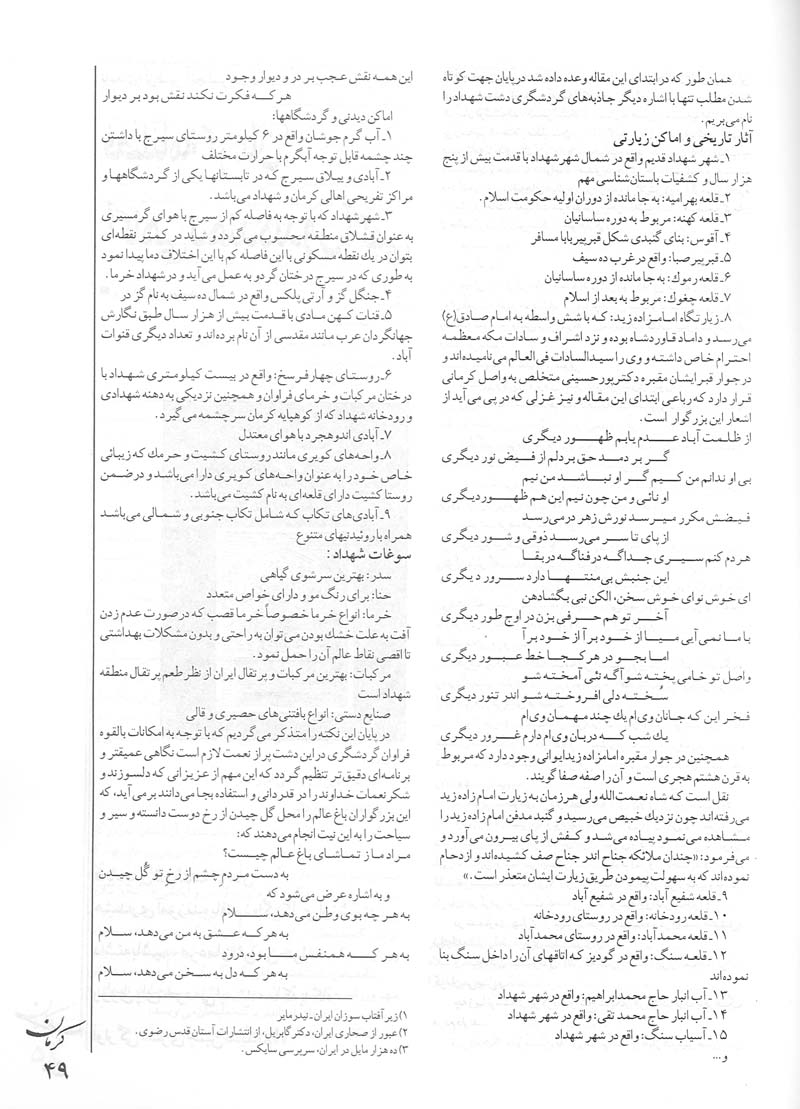 همان طور که در ابتدای این مقاله وعده داده شد در پایان جهت کوتاه
شدن مطلب تنها با اشاره دیگر جاذبه‌های گردشگری دشت شهداد را
نام می‌بریم.
آثار تاریخی و اماکن زیارتی
۱ـ شهر شهداد قدیم واقع در شمال شهر شهداد با قدمت بیش از پنج
هزار سال و کشفیات باستان‌شناسی مهم
۲ـ قلعه بهرامیه: به جا مانده از دوران اولیه حکومت اسلام.
۳ـ قلعه کهنه: مربوط به دوره ساسانیان
۴ـ آقوس: بنای گنبدی شکل قبر پیر بابا مسافر
۵ـ قبر پیر صبا: واقع در غرب ده سیف
۶ـ قلعه رموک: به جا مانده از دوره ساسانیان
۷ـ قلعه چغوک: مربوط به بعد از اسلام
۸ـ زیارتگاه امامزاده زید: که با شش واسطه به امام صادق(ع)
می‌رسد و داماد قاوردشاه بوده و نزد اشراف و سادات مکه معظمه
احترام خاص داشته و وی را سیدالسادات فی العالم می‌نامیده‌اند و
در جوار قبر ایشان مقبره دکتر پورحسینی متخلص به واصل کرمانی
قرار دارد که رباعی ابتدای این مقاله و نیز غزلی که در پی می‌آید از
اشعار این بزرگوار است.
از ظلمت آباد عدم یابم ظهور دیگری
گر بر دمد حق بر دلم از فیض نور دیگری
بی او ندانم من کیم گر او نباشد من نیم
او نائی و من چون نیم این هم ظهور دیگری
فیضش مکرر میرسد نورش زهر در می‌رسد
از پای تا سر می‌رسد ذوقی و شور دیگری
هر دم کنم سیری جداگه در فناگه در بقا
این جنبش بی‌منتها دارد سرور دیگری
ای خوش نوای خوش سخن، الکن نبی بگشادهن
آخر تو هم حرفی بزن در اوج طور دیگری
با ما نمی آیی میا از خود برآ از خود برآ
اما بجو در هر کجا خط عبور دیگری
واصل تو خامی پخته شو آگه نئی آمخته شو
سُخته دلی افروخته شو اندر تنور دیگری
فخر این که جانان وی‌ام یك چند مهمان وی‌ام
یك شب که دربان وی‌ام دارم غرور دیگری
همچنین در جوار مقبره امامزاده زید ایوانی وجود دارد که مربوط
به قرن هشتم هجری است و آن را صفه صفا گویند.
نقل است که شاه نعمت‌الله ولی هر زمان به زیارت امامزاده زید
می‌رفته‌اند چون نزدیك خبیص می‌رسید و گنبد مدفن امام زاده زید را
مشاهده می نمود پیاده می‌شد و کفش از پای بیرون می‌آورد و
می‌فرمود: «چندان ملائکه جناح اندر جناح صف کشیده‌اند و ازدحام
نموده‌اند که به سهولت پیمودن طریق زیارت ایشان متعذر است.»
۹ـ قلعه شفیع آباد: واقع در شفیع آباد
۱۰ـ قلعه رودخانه: واقع در روستای رودخانه
۱۱ـ قلعه محمدآباد: واقع در روستای محمدآباد
۱۲ـ قلعه سنگ: واقع در گودیز که اتاقهای آن را داخل سنگ بنا
نموده‌اند
۱۳ـ آب انبار حاج محمدابراهیم: واقع در شهر شهداد
۱۴ـ آب انبار حاج محمد تقی: واقع در شهر شهداد
۱۵ـ آسیاب سنگ: واقع در شهر شهداد
و...
این همه نقش عجب بر در و دیوار وجود
هر که فکرت نکند نقش بود بر دیوار
اماکن دیدنی و گردشگاهها:
۱ـ آب گرم جوشان واقع در ۶ کیلومتر روستای سیرچ با داشتن
چند چشمه قابل توجه آبگرم با حرارت مختلف
۲ـ آبادی و ییلاق سیرچ که در تابستانها یکی از گردشگاهها و
مراکز تفریحی اهالی کرمان و شهداد می‌باشد.
۳ـ شهر شهداد که با توجه به فاصله کم از سیرچ با هوای گرمسیری
به عنوان قشلاق منطقه محسوب می‌گردد و شاید در کمتر نقطه‌ای
بتوان در یك نقطه مسکونی با این فاصله کم با این اختلاف دما پیدا نمود
به طوری که در سیرچ درختان گردو به عمل می‌آید و در شهداد خرما.
۴ـ جنگل گز و آرتی پلکس واقع در شمال ده سیف به نام گز در
۵ـ قنات کهن مادی با قدمت بیش از هزار سال طبق نگارش
جهانگردان عرب مانند مقدسی از آن نام برده‌اند و تعداد دیگری قنوات
آباد.
۶ـ روستای چهار فرسخ: واقع در بیست کیلومتری شهداد با
درختان مرکبات و خرمای فراوان و همچنین نزدیکی به دهنه شهدادی
و رودخانه شهداد که از کوهپایه کرمان سرچشمه می‌گیرد.
۷ـ آبادی اندوهجرد با هوای معتدل
۸ـ واحه‌های کویری مانند روستای کشیت و حرمك که زیبائی
خاص خود را به عنوان واحه‌های کویری دارا می‌باشد و در ضمن
روستا کشیت دارای قلعه‌ای به نام کشیت می‌باشد.
۹ـ آبادی‌های تکاب که شامل تکاب جنوبی و شمالی می‌باشد
همراه با روئیدنیهای متنوع
سوغات شهداد:
سدر: بهترین سرشوی گیاهی
حنا: برای رنگ مو و دارای خواص متعدد
خرما: انواع خرما خصوصاً خرما قصب که در صورت عدم زدن
آفت به علت خشك بودن می‌توان به راحتی و بدون مشکلات بهداشتی
تا اقصی نقاط عالم آن را حمل نمود.
مرکبات: بهترین مرکبات و پرتقال ایران از نظر طعم پرتقال منطقه
شهداد است
صنایع دستی: انواع بافتنی‌های حصیری و قالی
در پایان این نکته را متذکر می گردیم که با توجه به امکانات بالقوه
فراوان گردشگری در این دشت پر از نعمت لازم است نگاهی عمیقتر و
برنامه‌ای دقیق تر تنظیم گردد که این مهم از عزیزانی که دلسوزند و
شکر نعمات خداوند را در قدردانی و استفاده بجا می‌دانند برمی‌آید، که
این بزرگواران باغ عالم را محل گل چیدن از رخ دوست دانسته و سیر و
سیاحت را به این نیت انجام می‌دهند که:
مراد ما ز تماشای باغ عالم چیست؟
به دست مردمِ چشم از رخ تو گُل چیدن
و به اشاره عرض می‌شود که
به هر چه بوی وطن می‌دهد، سلام
به هر که عشق به من می‌دهد، سلام
به هر که همنفس ما بود، درود
به هر که دل به سخن می‌دهد، سلام
۱) زیر آفتاب سوزان ایران ـ نیدرمایر
۲) عبور از صحاری ایران، دکتر گابریل، از انتشارات آستان قدس رضوی.
۳) ده هزار مایل در ایران، سرپرسی سایکس.
کرمان
۴۹